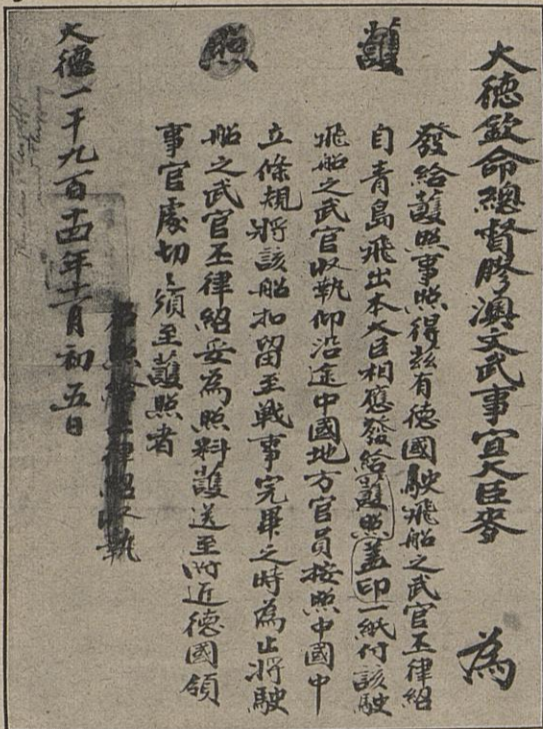 大德欽命總督膠澳文武事宜大臣麥 為
護照
發給護照事照得玆有德國駛飛船之武官丕律紹
自青島飛出本大臣相應發給護照蓋印一紙付該駛
飛船之武官收執仰沿途中國地方官員按照中國中
立條規將該船扣留至戰事完畢之時為止將駛
船之武官丕律紹妥為照料護送至附近德國領
事官處切々須至護照者
右照給丕律紹收執
大德一千九百十四年十一月初五日